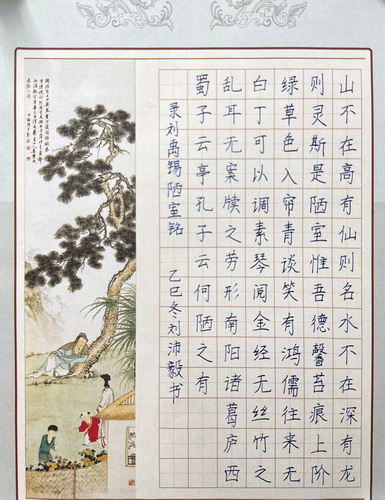 山不在高有仙则名水不在深有龙
则灵斯是陋室惟吾德馨苔痕上阶
绿草色入帘青谈笑有鸿儒往来无
白丁可以调素琴阅金经无丝竹之
乱耳无案牍之劳形南阳诸葛庐西
蜀子云亭孔子云何陋之有
录刘禹锡陋室铭 乙巳冬刘沛毅书